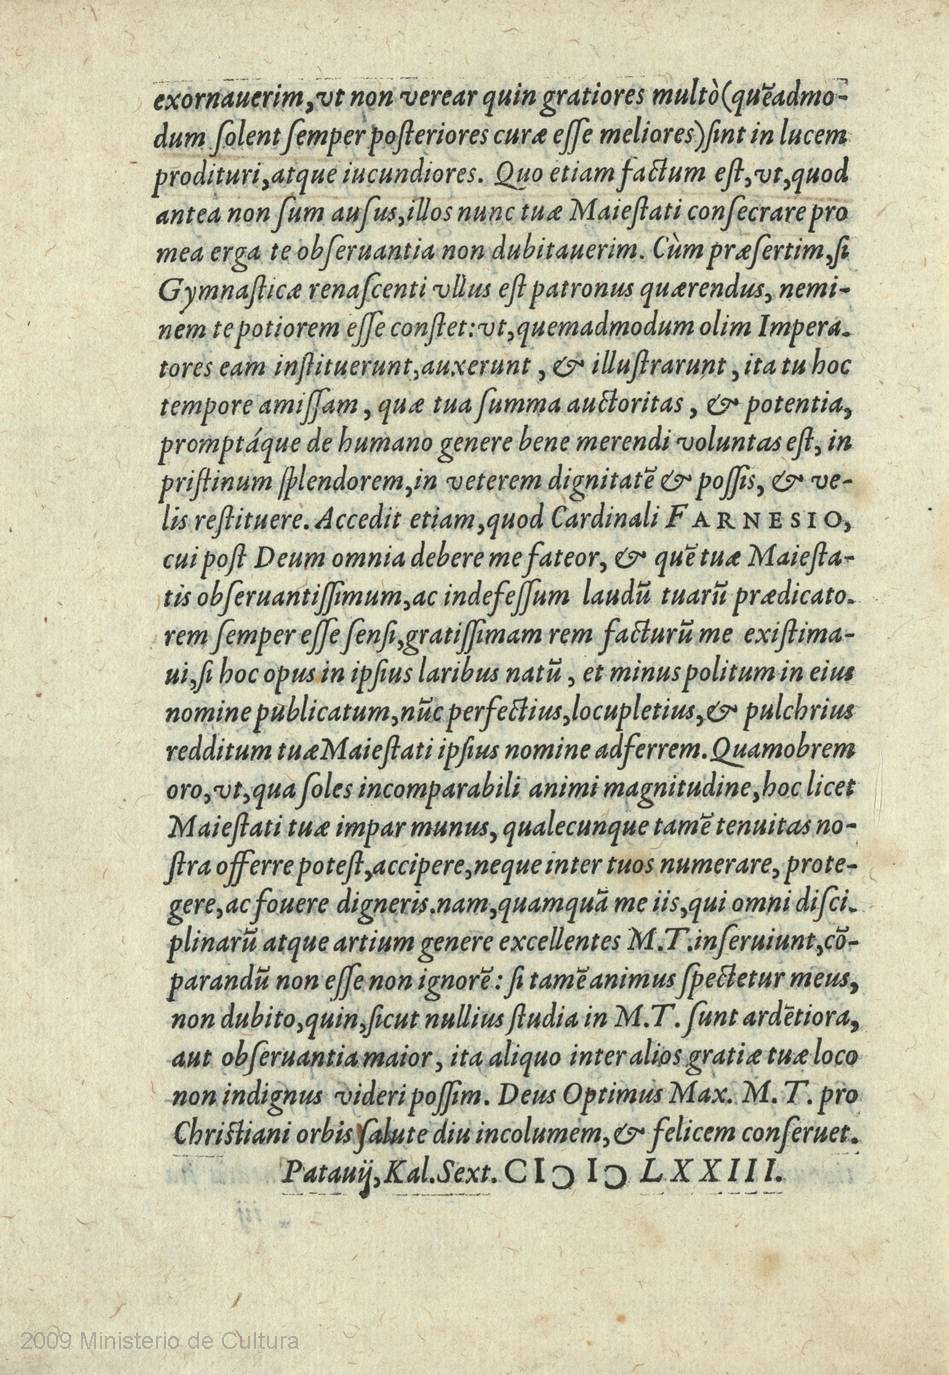 exornauerim,vt non verear quin gratiores multò(quẽadmo-
dum ſolent ſemper poſteriores curæ eſſe meliores)ſint in lucem
prodituri,atque iucundiores. Quo etiam factum eſt,vt,quod
antea non ſum auſus,illos nunc tuæ Maieſtati conſecrare pro
mea erga te obſeruantia non dubitauerim. Cùm præſertim,ſi
Gymnaſticæ renaſcenti vllus eſt patronus quærendus, nemi-
nem te potiorem eſſe conſtet:vt,quemadmodum olim Impera-
tores eam inſtituerunt,auxerunt, & illuſtrarunt, ita tu hoc
tempore amiſſam, quæ tua ſumma auctoritas, & potentia,
promptáque de humano genere bene merendi voluntas eſt, in
priſtinum ſplendorem,in veterem dignitatẽ & poſſis, & ve-
lis reſtituere. Accedit etiam,quod Cardinali FARNESIO,
cui poſt Deum omnia debere me fateor, & quẽ tuæ Maieſta-
tis obſeruantiſſimum,ac indefeſſum laudũ tuarũ prædicato-
rem ſemper eſſe ſenſi,gratiſſimam rem facturũ me exiſtima-
ui,ſi hoc opus in ipſius laribus natũ, et minus politum in eius
nomine publicatum,nũc perfectius,locupletius,& pulchrius
redditum tuæ Maieſtati ipſius nomine adferrem. Quamobrem
oro,vt,qua ſoles incomparabili animi magnitudine,hoc licet
Maieſtati tuæ impar munus, qualecunque tamẽ tenuitas no-
ſtra offerre poteſt,accipere,neque inter tuos numerare, prote-
gere,ac fouere digneris.nam,quamquã me iis,qui omni diſci-
plinarũ atque artium genere excellentes M.T.inſeruiunt,cõ-
parandũ non eſſe non ignorẽ: ſi tamẽ animus ſpectetur meus,
non dubito,quin,ſicut nullius ſtudia in M.T. ſunt ardẽtiora,
aut obſeruantia maior, ita aliquo inter alios gratiæ tuæ loco
non indignus videri poſſim. Deus Optimus Max. M. T. pro
Chriſtiani orbis ſalute diu incolumem,& felicem conſeruet.
Patauij,Kal.Sext. CIↃ IↃ LXXIII.
2009 Ministerio de Cultura